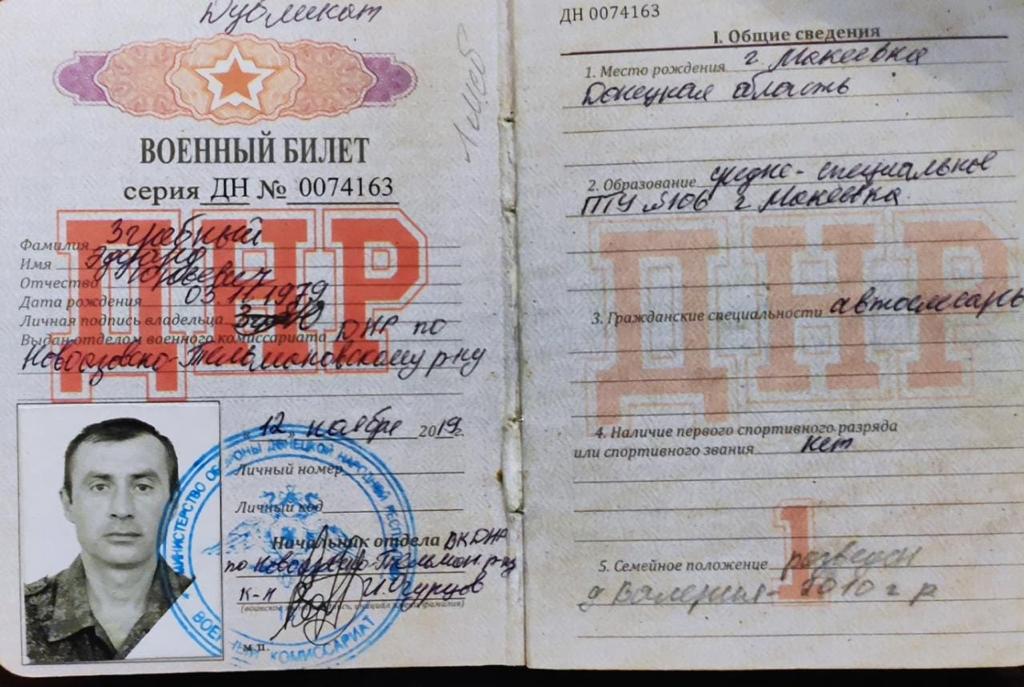 Дубликат
ВОЕННЫЙ БИЛЕТ
серия ДН № 0074163
ДНР
Фамилия Згребный
Имя Эдуард
Отчество Юрьевич
Дата рождения 03.11.1979
Личная подпись владельца
Выдан отделом военного комиссариата ДНР по
Новоазовско-Тельмановскому р-ну
"12" ноября 2019г.
Личный номер
Личный код
Начальник отдела ВК ДНР
по Новоазовско-Тельман. р-ну
к-н И. Огурцов
м.п.
МИНИСТЕРСТВО ОБОРОНЫ ДОНЕЦКОЙ НАРОДНОЙ
ВОЕННЫЙ КОМИССАРИАТ
ДН 0074163
I. Общие сведения
1. Место рождения г. Макеевка
Донецкая область
2. Образование средне-специальное
ПТУ №106 г. Макеевка
ДНР
3. Гражданские специальности автослесарь
4. Наличие первого спортивного разряда
или спортивного звания нет
1
5. Семейное положение разведен
д Валерия - 2010 г р